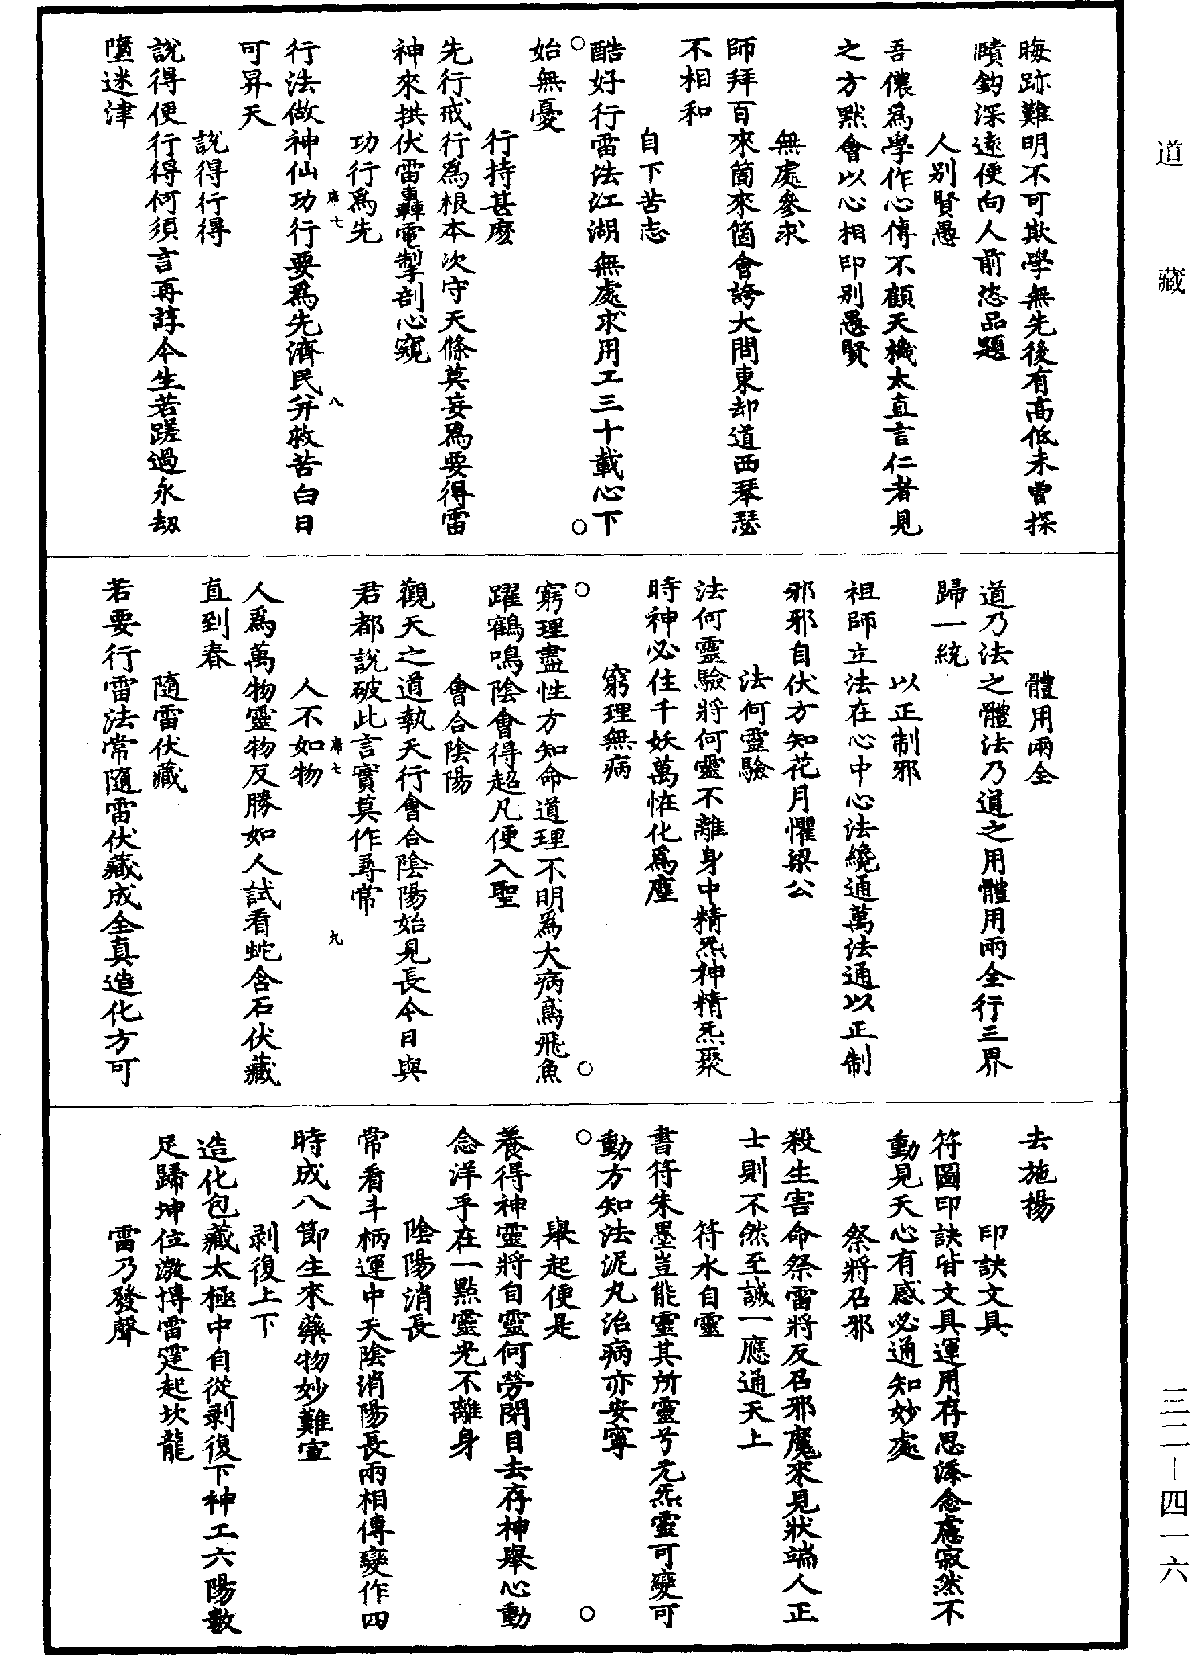 晦跡難明不可欺學無先後有高低未曾探
賾鈎深遠便向人前恣品題
人別賢愚
吾儂爲學作心傳不顧天機太直言仁者見
之方黙會以心相印別愚賢
無處參求
師拜百來箇來箇會誇大問東却道西琴瑟
不相和
自下苦志
酷好行雷法江湖無處求用工三十載心下
始無憂
行持甚麽
先行戒行爲根本次守天條莫妄爲要得雷
神來拱伏雷轟電掣剖心窺
功行爲先
行法做神仙功行要爲先濟民并救苦白日
可昇天
說得行得
說得便行得何須言再諄今生若蹉過永劫
墮迷津
體用兩全
道乃法之體法乃道之用體用兩全行三界
歸一統
以正制邪
祖師立法在心中心法纔通萬法通以正制
邪邪自伏方知花月懼梁公
法何靈驗
法何靈驗將何靈不離身中精炁神精炁聚
時神必住千妖萬怪化爲塵
窮理無病
窮理盡性方知命道理不明爲大病鳶飛魚
躍鶴鳴陰會得超凡便入聖
會合陰陽
觀天之道執天行會合陰陽始見長今日與
君都說破此言實莫作尋常
人不如物
人爲萬物靈物反勝如人試看蛇含石伏藏
直到春
隨雷伏藏
若要行雷法常隨雷伏藏成全真造化方可
去施揚
印訣文具
符圖印訣皆文具運用存思添念慮寂然不
動見天心有感必通知妙處
祭將召邪
殺生害命祭雷將反召邪魔來見狀端人正
士則不然至誠一應通天上
符水自靈
書符朱墨豈能靈其所靈兮元炁靈可變可
動方知法泥丸治病亦安寧
舉起便是
養得神靈將自靈何勞閉目去存神舉心動
念洋乎在一點靈光不離身
陰陽消長
常看斗柄運中天陰消陽長兩相傳變作四
時成八節生來藥物妙難宣
剥復上下
造化包藏太極中自從剥復下神工六陽數
足歸坤位激博雷霆起坎龍
雷乃發聲
席七
八
席七
九
道藏
三二—四一六